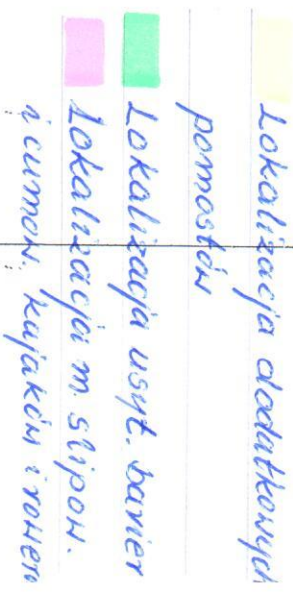 Lokalizacja dodatkowych
pomostów
Lokalizacja usyt. barier
Lokalizacja m. slipow.
i cumow. kajaków i rower